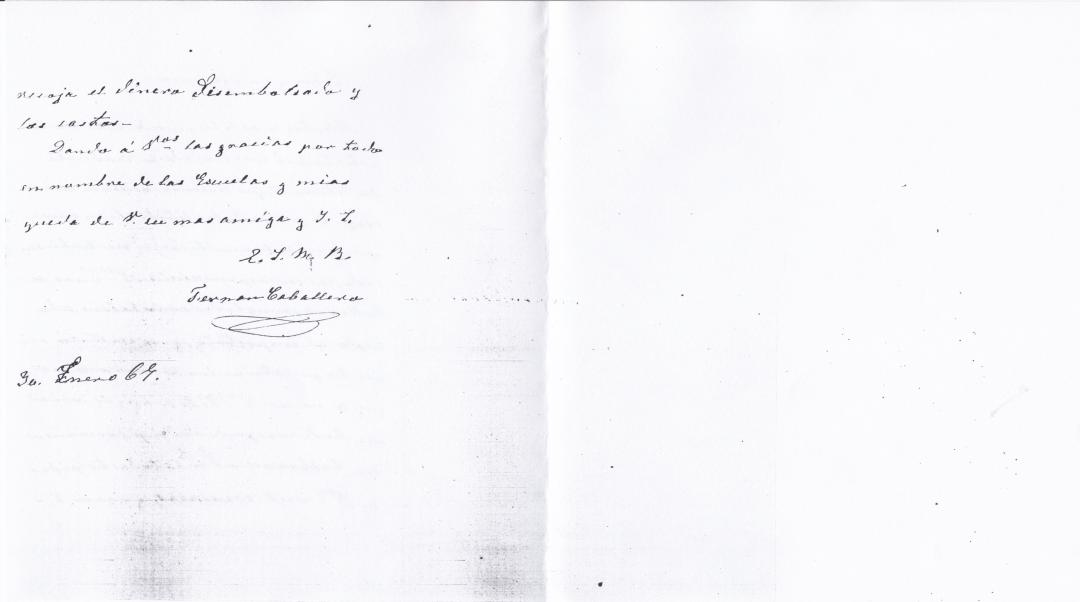 recoja el dinero disembolsado y
los costos_
Dando á Vdas las gracias por todo
en nombre de las Escuelas y mias
queda de V. su mas amiga y S. S.
Q. S. M. B.
Fernan Caballero
30. Enero 69.